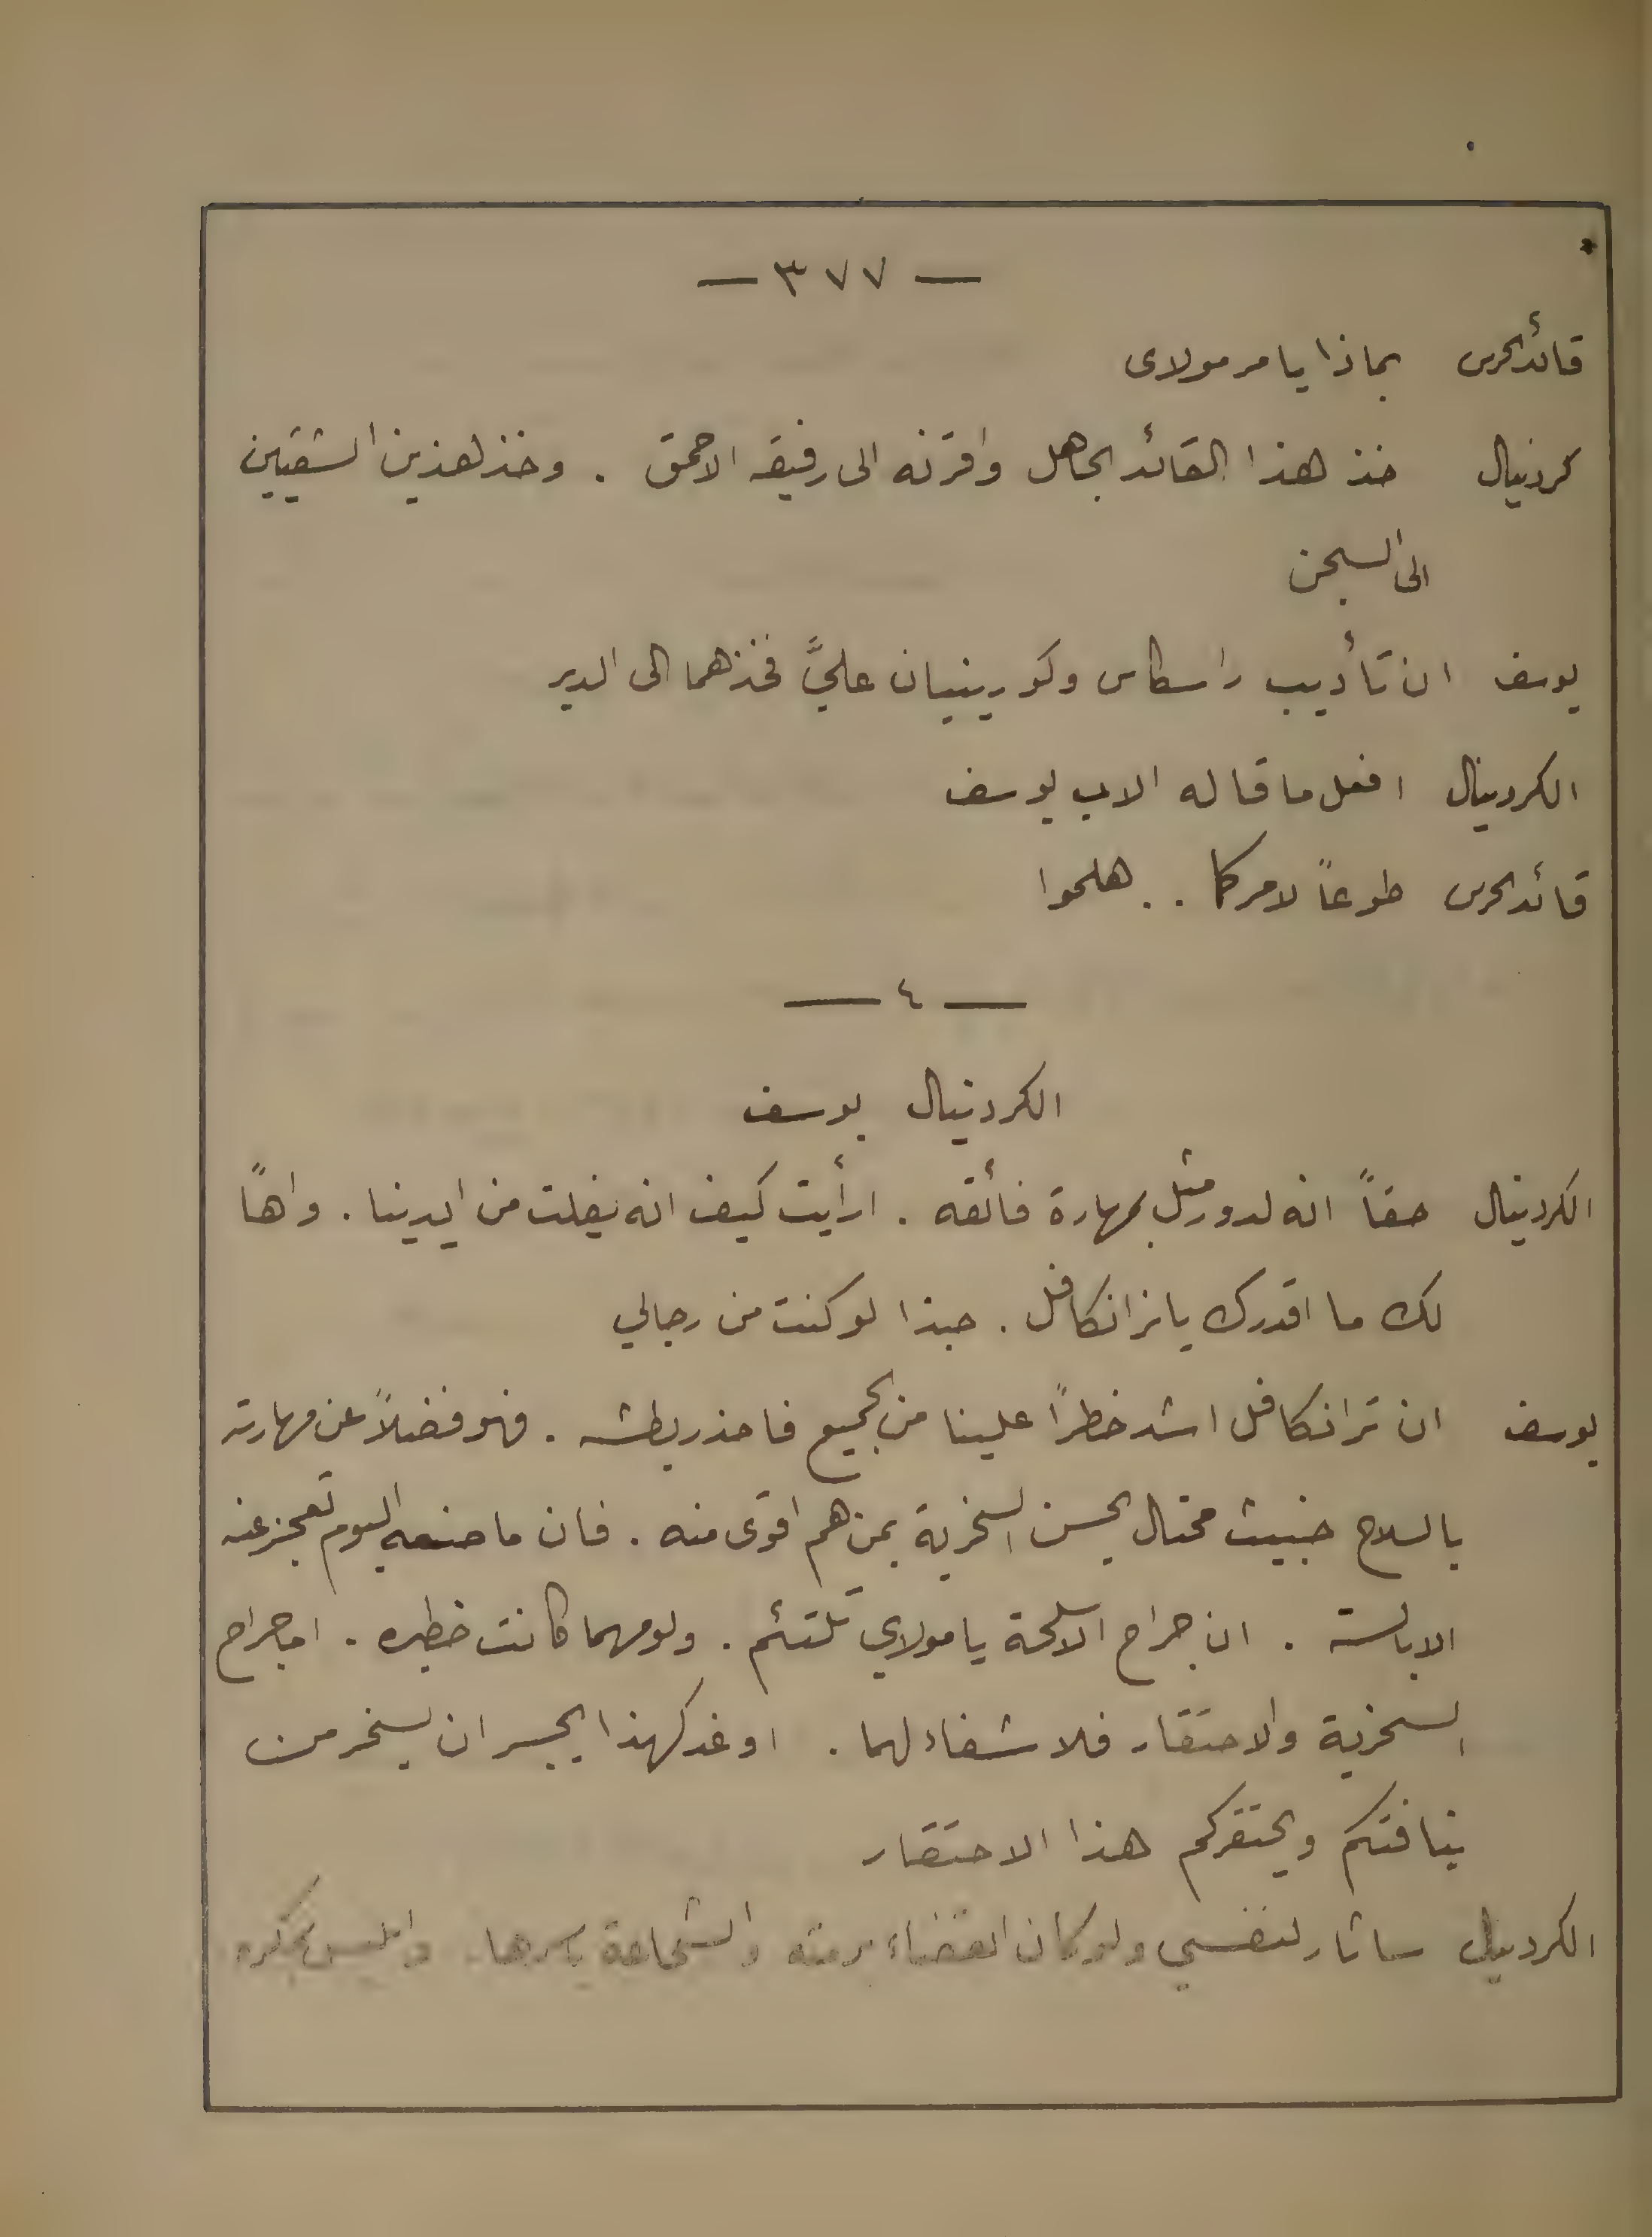 — ٣٧٧ —
قائد الحرس بماذا يا مر مولاى
كردنيال خذ هذا القائد الجاهل واقرنه الى رفيقه الاحمق . وخذ هذين الشقيين
الى السجن
يوسف ان تأديب راسكاس وكورينيان عليَّ فخذهما الى الدير
الكردينال افعل ما قاله الاب يوسف
قائد الحرس طوعاً لامركما . . هلموا
— ٤ —
الكردنيال يوسف
الكردنيال حقاً انه لدور مثل بمهارة فائقه . ارأيت كيف انه يفلت من ايدينا . واهاً
لك ما اقدرك يا ترانكافل . حبذا لو كنت من رجالي
يوسف ان ترانكافل اشد خطراً علينا من الجميع فاحذر بطشه . فهو فضلاً عن مهارته
بالسلاح خبيث محتال يحسن السخرية بمن هم اقوى منه . فان ما صنعه اليوم تعجز عنه
الابالسة . ان جراح الاسلحة يا مولاي تلتئم . ولو مهما كانت خطيره . اما جراح
السخرية والاحتقار فلا شفاء لهما . اوغد كهذا يجسر ان يسخر من
نيافتكم ويحتقركم هذا الاحتقار
الكردنيال ساثار لنفسي ولو كان القضاء برمته والشجاعة باسرها . وابليس بمكره